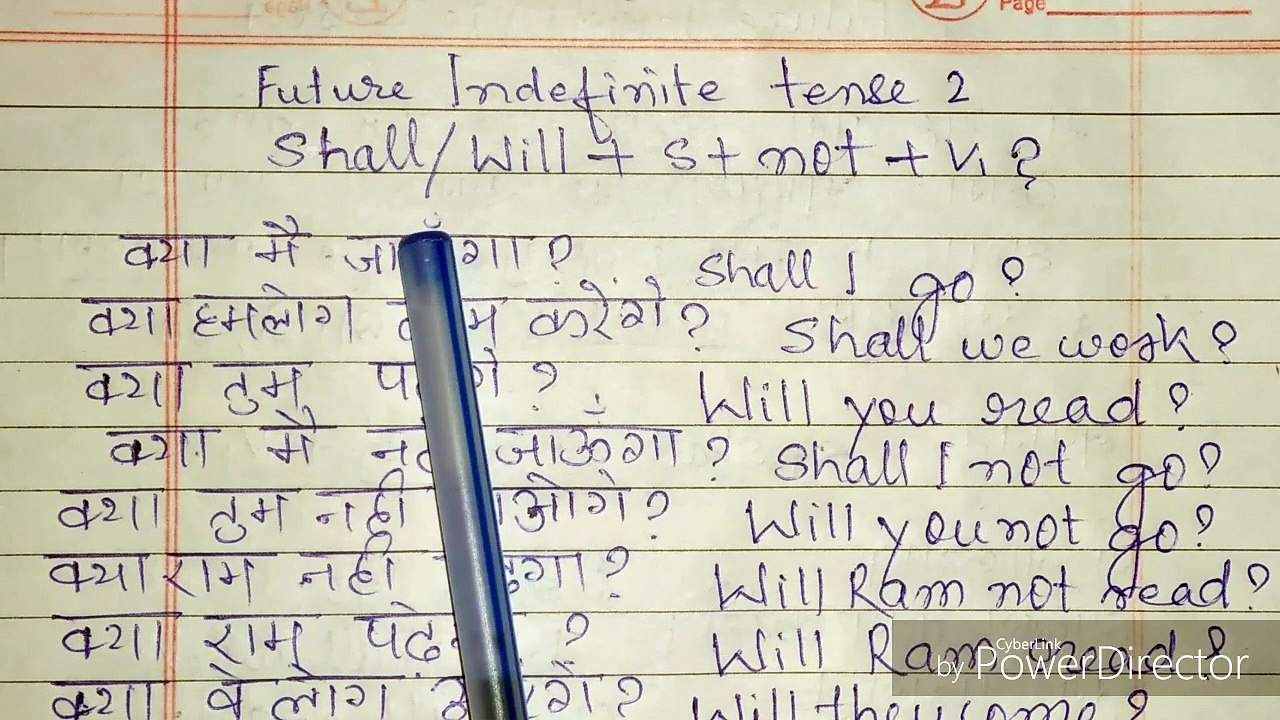 Page
Future Indefinite tense 2
Shall/Will + S + not + V1 ?
क्या मै ? Shall I go ?
क्या हमलोग करेंगे ? Shall we work ?
क्या तुम ? Will you read ?
क्या मै जाऊँगा ? Shall I not go ?
क्या तुम नही ? Will you not go ?
क्या राम नही ? Will Ram not read ?
क्या राम ? Will Ram read ?
क्या वे लोग ? Will they come ?
CyberLink
by PowerDirector